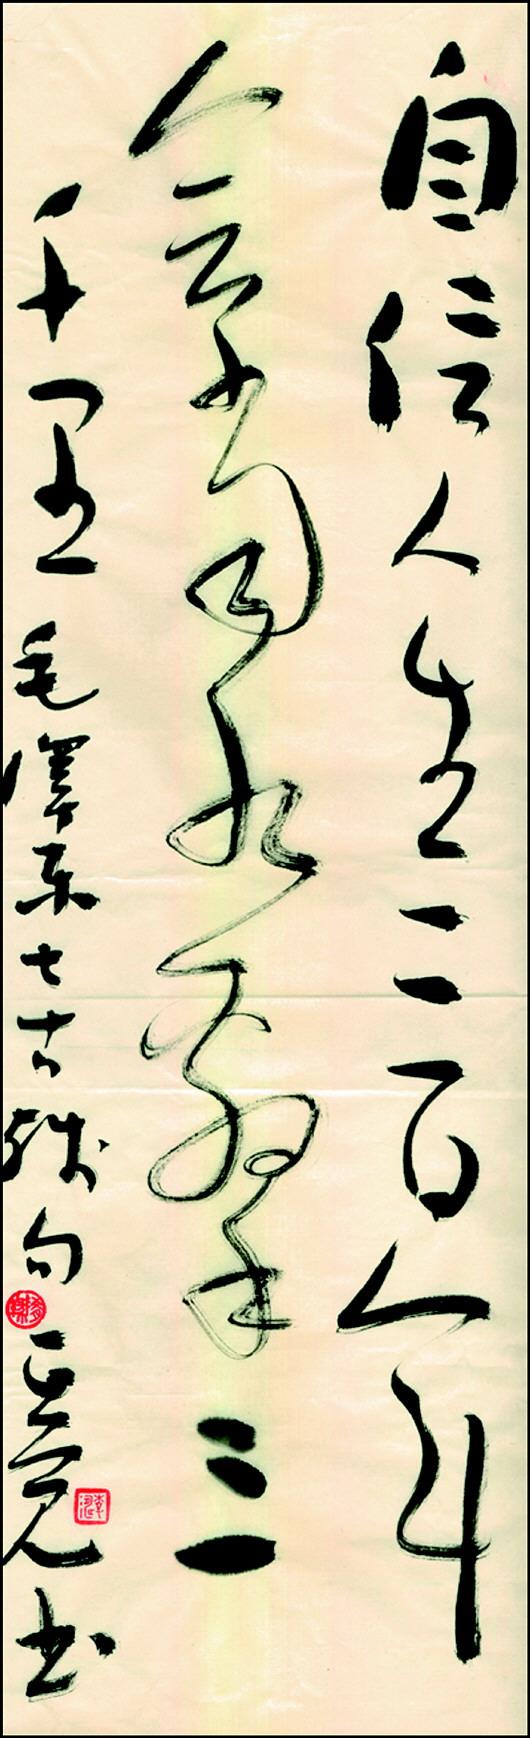 自信人生二百年
会當水擊三
千里 毛澤东七古残句 书